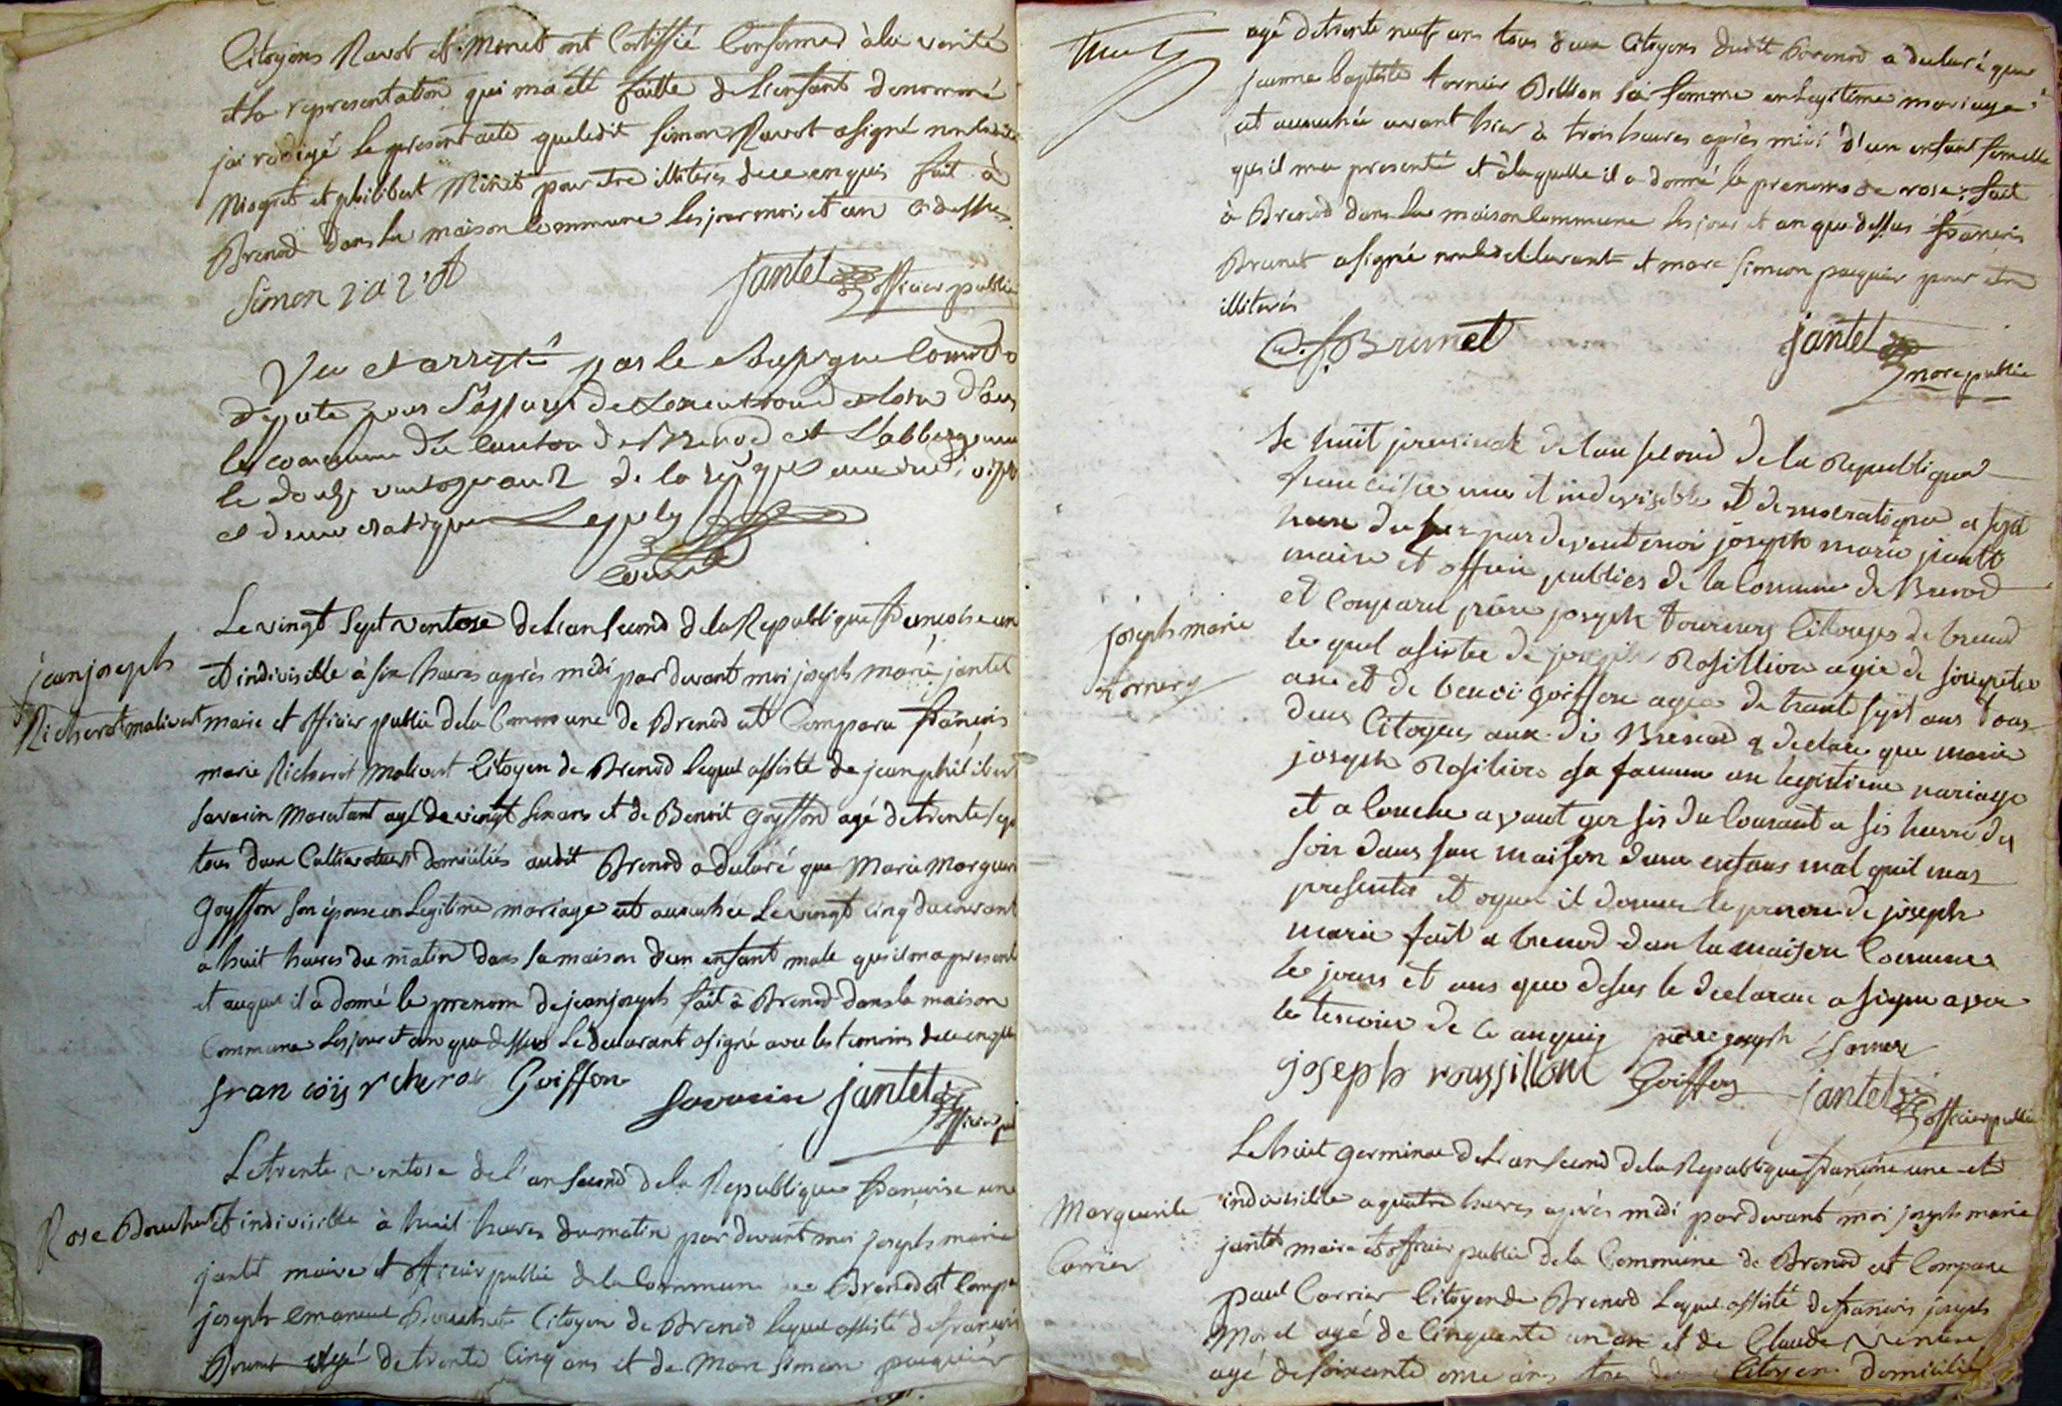 Citoyens Ravot et Minet ont Certiffié Conformes à la verité
et la representation qui ma été faitte de L'enfant denommé
jai rédigé le present acte que ledit Simon Ravot a signé non ledit
Niogret et philibert Minet pour etre illiteres de ce enquis fait à
Brenod dans la maison Commune les jour mois et an ci dessus
Simon ravot jantet officier public
Vu et arrêté par le
député pour
les commune du canton de Brenod et
le douze de la
et democratique
Le vingt Sept ventose de l'an second de la Republique françoise une
jean joseph
Richerot malivert
et indivisible à six heures après midi par devant moi joseph marie jantet
maire et officier public de la Commune de Brenod est Comparu françois
marie Richerot malivert Citoyen de Brenod lequel assisté de jean philibert
Savarin Maratant agé de vingt six ans et de Benoit Goyffon agé de trente sept
tous deux Cultivateurs domiciliés audit Brenod a declaré que Marie Marguerit
Goyffon son épouse en Legitime mariage est accouchée Le vingt cinq du courant
a huit heures du matin dans sa maison d'un enfant male quil ma present
et auquel il a donné le prenom de jean joseph fait à Brenod dans la maison
Commune Les jour et an que dessus Le declarant a signé avec les temoins de ce enquis
francois rcherot Goiffon Savarin jantet officier pub
Le trente ventose de l'an second de la Republique françoise une
Rose Bouchet
et indivisible à huit heures du matin par devant moi joseph marie
jantet maire et officier public de la Commune de Brenod est Comparu
joseph emanuel Bouchet Citoyen de Brenod lequel assisté de françois
Brunet agé de trente Cinq ans et de Marc Simeon pasquier
agé de trente neuf ans tous deux Citoyens dudit Brenod a declaré que
jeanne baptiste tornier Billion sa femme en Legitime mariage
est accouchée avant hier à trois heures après midi d'un enfant femelle
quil ma presenté et à laquelle il a donné le prenoms de rose; fait
à Brenod dans la maison Commune les jour et an que dessus françois
Brunet a signé non le declarant et marc Simeon pasquier pour etre
illiterés
f. Brunet jantet
public
Le huit jerminal de lan second de la Republique
francoise une et indivisible et democratique a sept
heure du soir par devent moi joseph marie jantet
maire et officie publics de la Comune de Brenod
joseph marie
torniery
et comparu piere joseph torniery Citoiyes de brenod
le quel asistee de joseph Rosillion agée de soisente
ans et de benoi Goiffon agée de trante sept ans tous
deus Citoyens au di Brenod a declare que marie
joseph Rosilion sa famme an legistime mariage
et a couche avant yer sis du Courant a sis heure du
soir dans san maison dun enfans mal quil mas
presentee et oquel il donne le prenon de joseph
marie fait a brenod dan la maison Commune
les jours et ans que desus le declaran a signe avec
le temoins de ce anquis piere joseph torniery
joseph roussillont Goiffon jantet officier public
Le huit Germinal de L'an second de la Republique francoise une et
Marguerite
Carrier
indivisible a quatre heures après midi par devant moi joseph marie
jantet maire et officier public de la Commune de Brenod est Comparu
paul Carrier Citoyen de Brenod Lequel assisté de françois joseph
Morel agé de Cinquante un an et de Claude
agé de soixante onze ans tous deux Citoyens domiciliés